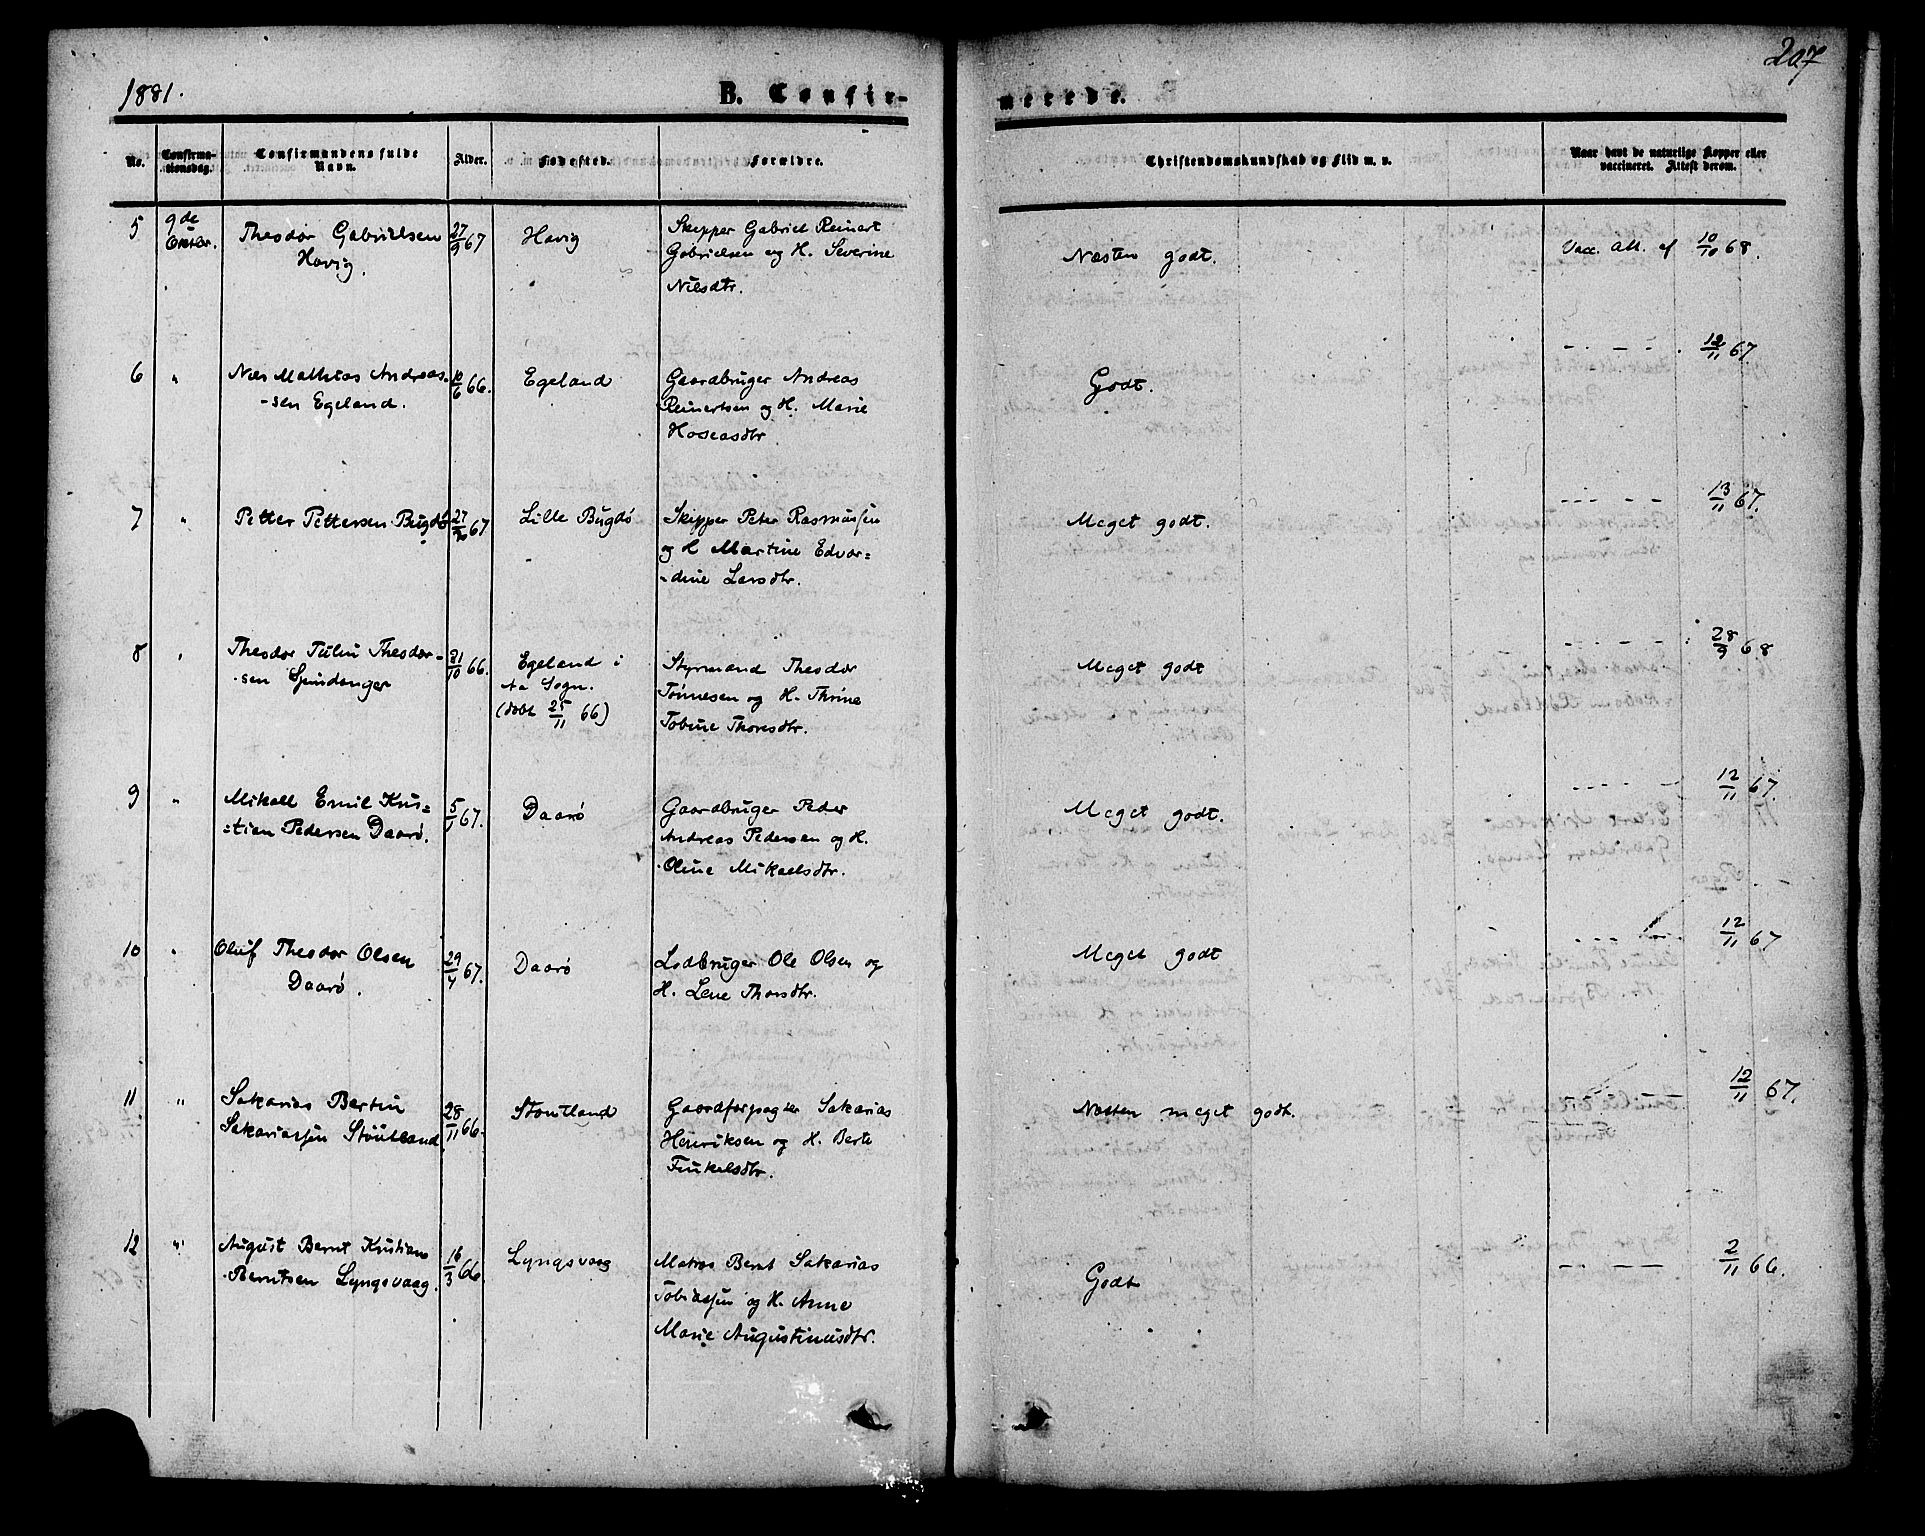 1881.
B. Confir-
merede.
207
No.
Confirma-
tionsdag.
Confirmandens fulde
Navn.
Alder.
Fødested.
Forældre.
Christendomskundskab og Flid m. v.
Naar havt de naturlige Kopper eller
vaccineret. Attest derom.
5 9de Theodor Gabrielsen 27/9 67 Havig Skipper Gabriel Reinert
Oktbr. Havig. Gabrielsen og H. Severine
Nilsdtr.
Næsten godt. Vacc. Att. af 10/10 68.
6 " Mathias Andreas-
-sen Egeland. 10/6 66. Egeland Gaardbruger Andreas
Reinertsen og H. Marie
Hoseasdtr.
Godt. - - - - 12/11 67.
7 " Petter Pettersen Bugdø 27/10 67 Lille Bugdø Skipper Peter Rasmussen
og H Martine Edvar=
-dine Larsdtr.
Meget godt. - - - - 13/11 67.
8 " Theodor Theodor-
-sen 21/10 66. Egeland i
Sogn.
(døbt 25/11 66)
Styrmand Theodor
Tønnesen og H. Thrine
Tobine Thorsdtr.
Meget godt - - - - 28/9 68
9 " Mikael Emil Kris=
=tian Pedersen Daarø. 5/1 67. Daarø Gaardbruger Peder
Andreas Pedersen og H.
Oline Mikaelsdtr.
Meget godt. - - - - 12/11 67.
10 " Oluf Theodor Olsen
Daarø. 29/4 67. Daarø Ole Olsen og
H. Lene Thorsdtr.
Meget godt - - - 12/11 67
11 " Sakarias Bertin
Sakariassen Støutland 28/11 66. Stoutland Gaardforpagter Sakarias
Henriksen og H. Berte
Finkelsdtr.
Næsten meget godt. - - - - 12/11 67.
12 " August Bernt Kristian
Berntsen Lyngsvaag. 16/3 66. Lyngsvaag Matros Bernt Sakarias
Tobiassen og H. Anne
Marie Augustinusdtr.
Godt - - - - 2/11 66.